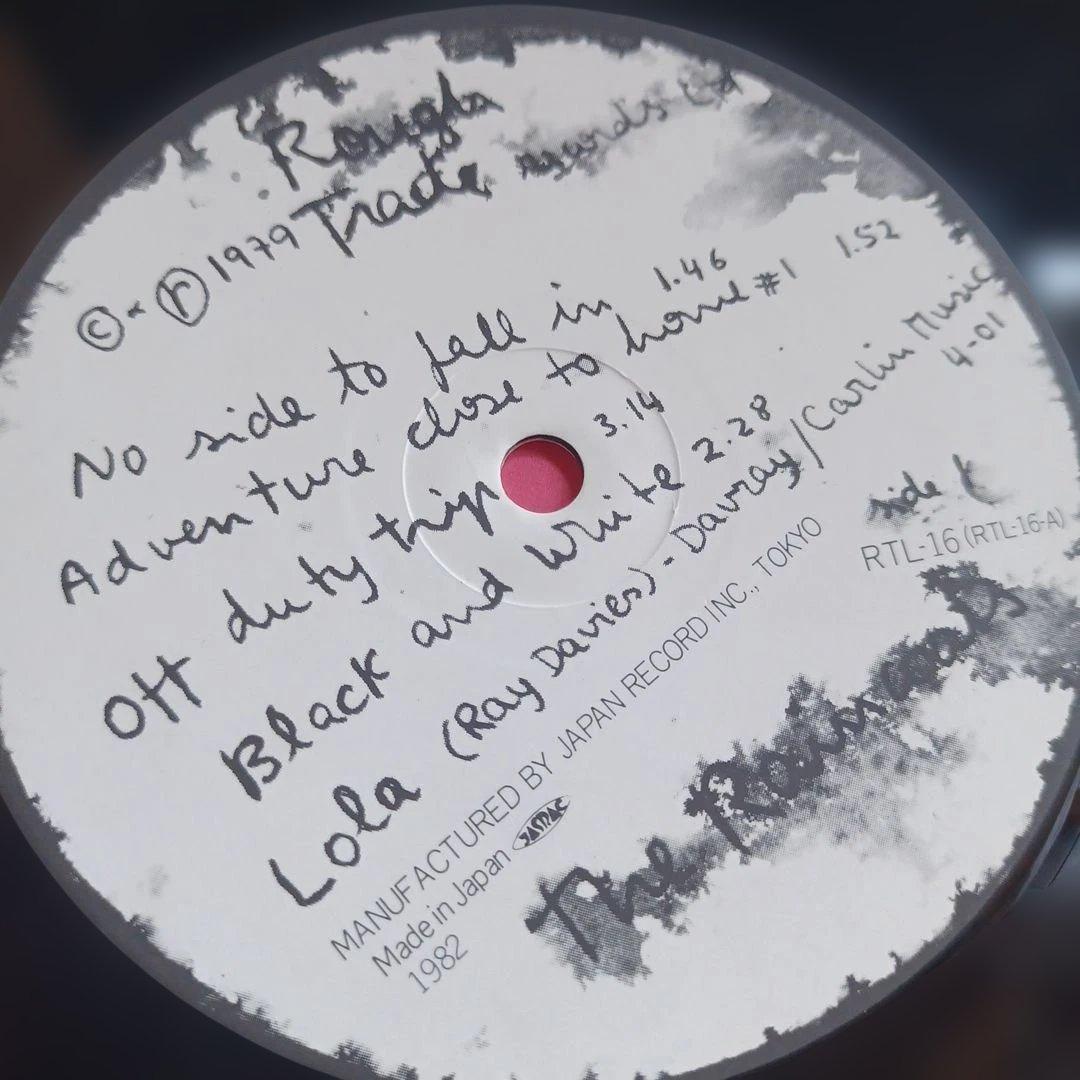 Rough
Trade records Ltd
© - ℗ 1979
No side to fall in 1.46
Adventure close to home #1 1.52
Off duty trip 3.14
Black and White 2.28
Lola (Ray Davies) - Davray / Carlin Music
4-01
side
RTL-16 (RTL-16-A)
MANUFACTURED BY JAPAN RECORD INC., TOKYO
Made in Japan JASRAC
1982
The Raincoats